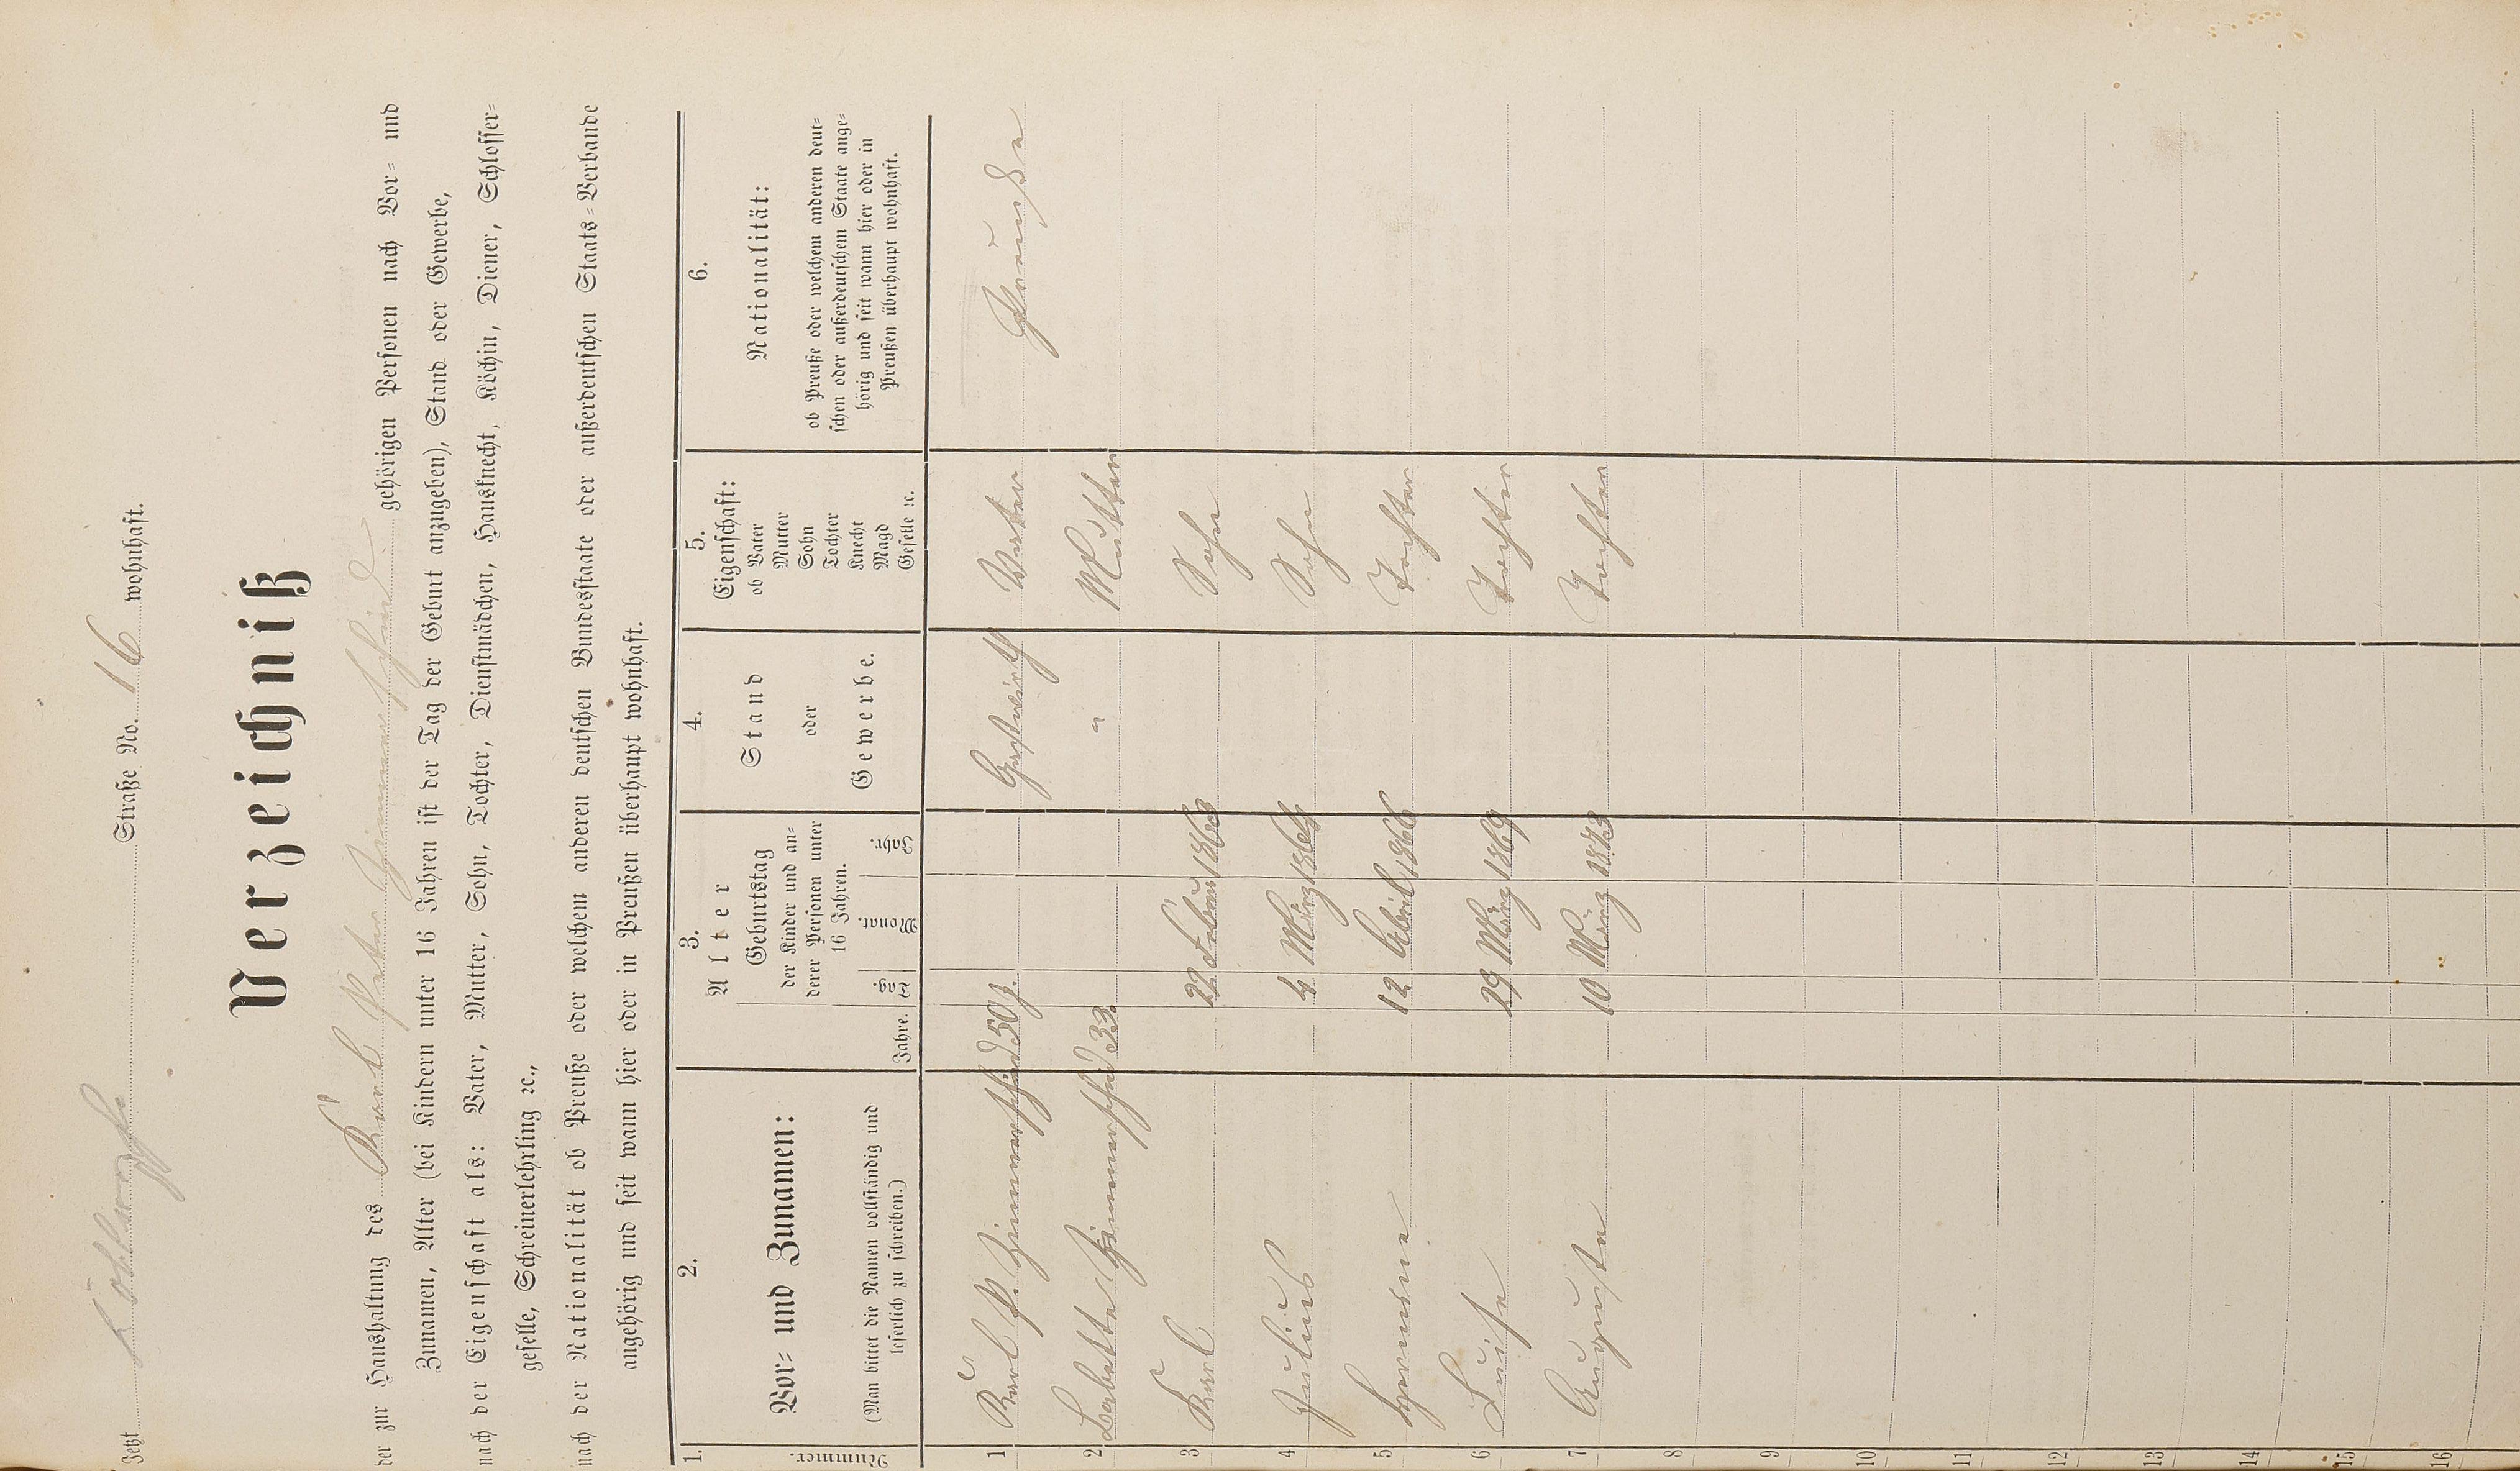 Jetzt Straße No. 16 wohnhaft.
Verzeichniß
der zur Haushaltung des Karl Peter Zimmerschied gehörigen Personen nach Vor= und
Zunamen, Alter (bei Kindern unter 16 Jahren ist der Tag der Geburt anzugeben), Stand oder Gewerbe,
nach der Eigenschaft als: Vater, Mutter, Sohn, Tochter, Dienstmädchen, Hausknecht, Köchin, Diener, Schlosser=
geselle, Schreinerlehrling ꝛc.,
nach der Nationalität ob Preuße oder welchem anderen deutschen Bundesstaate oder außerdeutschen Staats=Verbande
angehörig und seit wann hier oder in Preußen überhaupt wohnhaft.
1. 2. 3. 4. 5. 6.
Nummer.
Vor= und Zunamen:
(Man bittet die Namen vollständig und
leserlich zu schreiben.)
Alter
Jahre.
Geburtstag
der Kinder und an=
derer Personen unter
16 Jahren.
Tag. Monat. Jahr.
Stand
oder
Gewerbe.
Eigenschaft:
ob Vater
Mutter
Sohn
Tochter
Knecht
Magd
Geselle ꝛc.
Nationalität:
ob Preuße oder welchem anderen deut=
schen oder außerdeutschem Staate ange=
hörig und seit wann hier oder in
Preußen überhaupt wohnhaft.
1 Karl P. Zimmerschied 50 J. Gastwirth Vater Preuße
2 Babette Zimmerschied 33. " Mutter
3 Karl 22 Februar 1863 Sohn
4 Julius 4 März 1864 Sohn
5 Hermine 12 April 1866 Tochter
6 Luise 29 März 1869 Tochter
7 Auguste 10 März 1873 Tochter
8
9
10
11
12
13
14
15
16